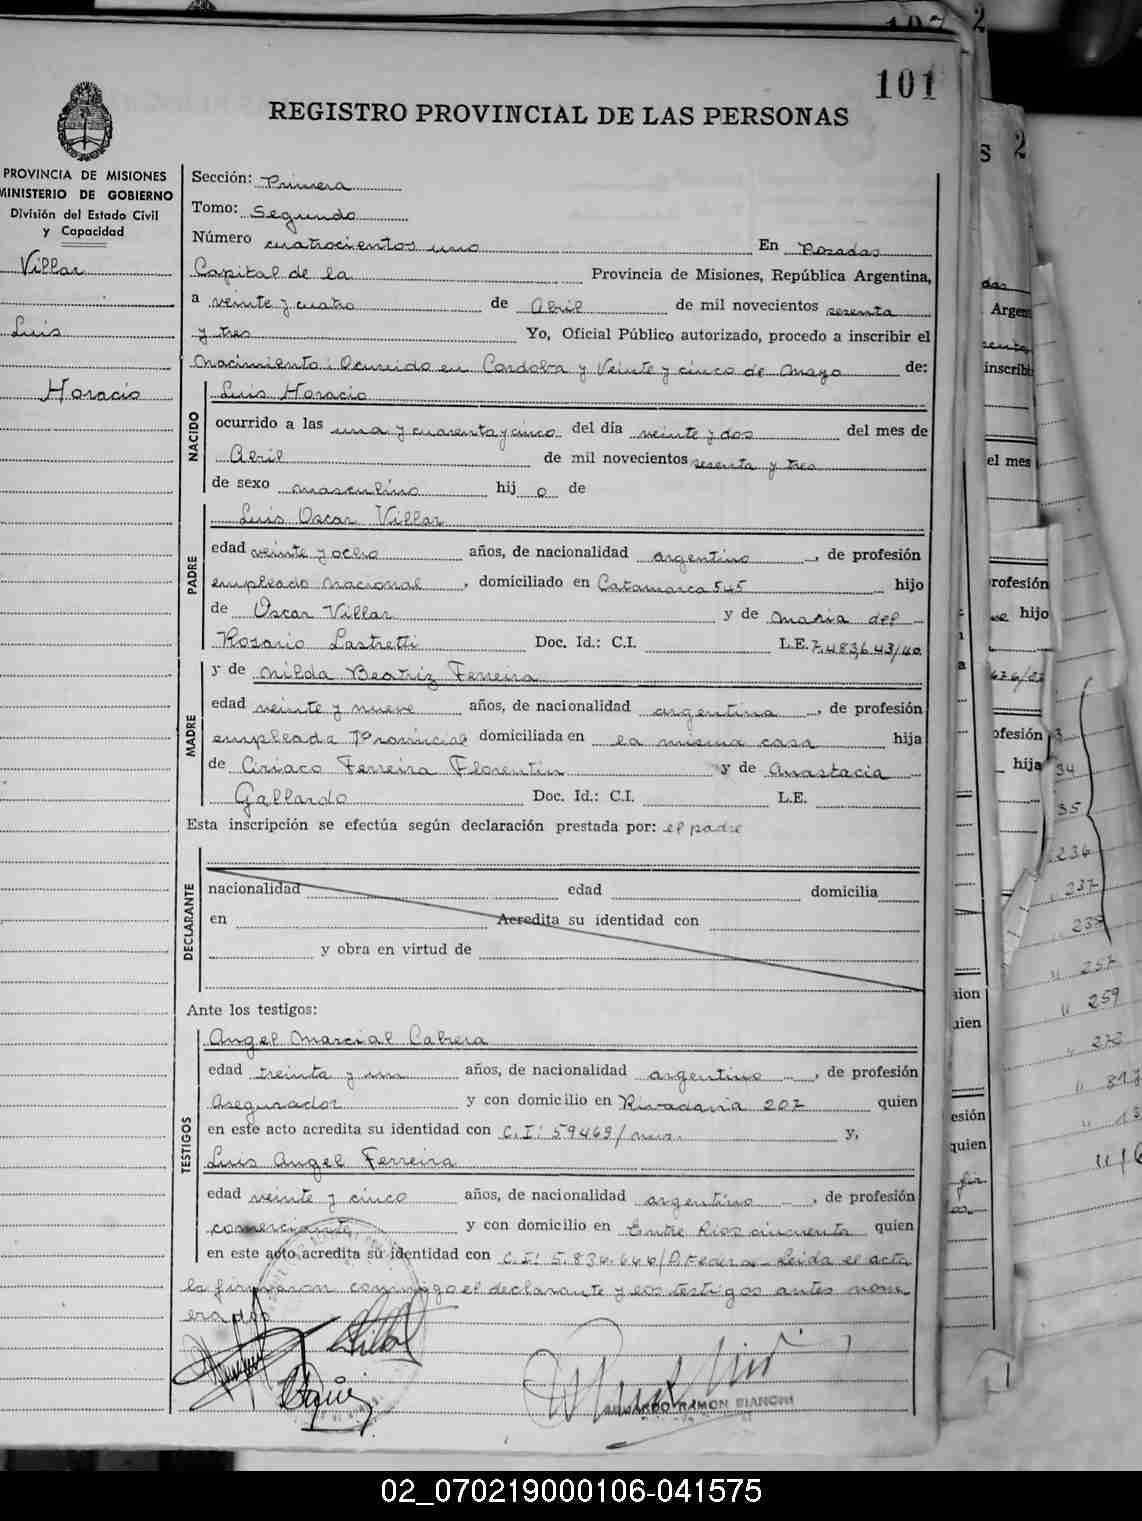 101
REGISTRO PROVINCIAL DE LAS PERSONAS
PROVINCIA DE MISIONES
MINISTERIO DE GOBIERNO
División del Estado Civil
y Capacidad
Villar
Luis
Horacio
Sección: Primera
Tomo: Segundo
Número cuatrocientos uno En Posadas
Capital de la Provincia de Misiones, República Argentina,
a veinte y cuatro de Abril de mil novecientos sesenta
y tres Yo, Oficial Público autorizado, procedo a inscribir el
Nacimiento: Ocurrido en Cordoba y Veinte y cinco de Mayo de:
NACIDO
Luis Horacio
ocurrido a las una y cuarenta y cinco del día veinte y dos del mes de
Abril de mil novecientos sesenta y tres
de sexo masculino hij o de
PADRE
Luis Oscar Villar
edad veinte y ocho años, de nacionalidad argentino, de profesión
empleado nacional, domiciliado en Catamarca 545 hijo
de Oscar Villar y de Maria del
Rosario Lastretti Doc. Id.: C.I. L.E. 7.483.643/40
MADRE
y de Nilda Beatriz Ferreira
edad veinte y nueve años, de nacionalidad argentina, de profesión
empleada Provincial domiciliada en la misma casa hija
de Ciriaco Ferreira Florentin y de Anastacia
Gallardo Doc. Id.: C.I. L.E.
Esta inscripción se efectúa según declaración prestada por: el padre
DECLARANTE
nacionalidad edad domicilia
en Acredita su identidad con
y obra en virtud de
Ante los testigos:
TESTIGOS
Angel Marcial Cabrera
edad treinta y un años, de nacionalidad argentino, de profesión
Asegurador y con domicilio en Rivadavia 207 quien
en este acto acredita su identidad con C.I: 59469/ y,
Luis Angel Ferreira
edad veinte y cinco años, de nacionalidad argentino, de profesión
comerciante y con domicilio en Entre Rios cincuenta quien
en este acto acredita su identidad con C.I: 5.834.646/P.Federal - Leida el acta
la firmaron conmigo el declarante y los testigos antes nom
erados
RAMON BIANCHI
02_070219000106-041575